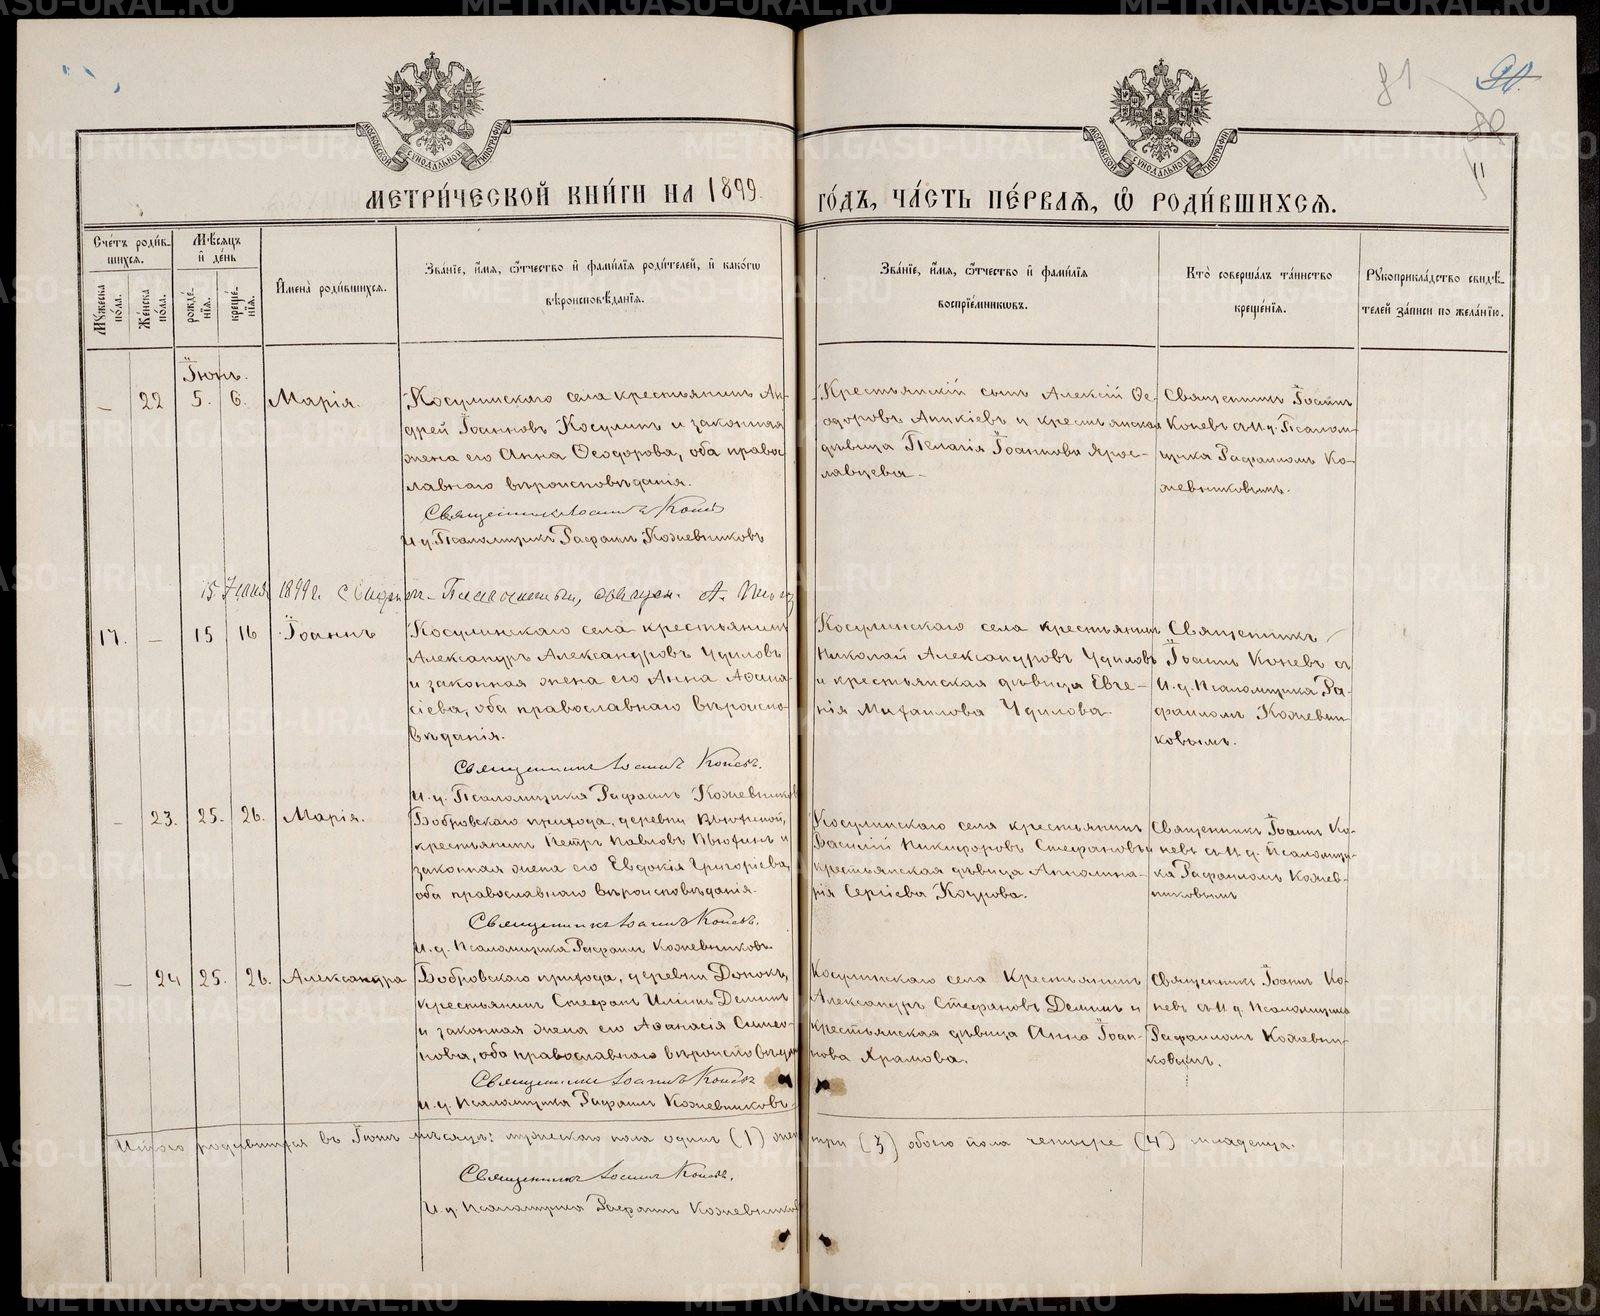 МЕТРИ́ЧЕСКОЙ КНИ́ГИ НА 1899 ГО́ДЪ, ЧА́СТЬ ПЕ́РВАѦ, Ѿ РОДИ́ВШИХСѦ.
МОСКОВСКОЙ СѴНОДАЛЬНОЙ ТИПОГРАФІИ
МОСКОВСКОЙ СѴНОДАЛЬНОЙ ТИПОГРАФІИ
81
Сче́тъ роди́в-
шихсѧ.
Мꙋжеска по́ла.
Же́нска по́ла.
Мѣ́сѧцъ и҆ де́нь
рожде́-нїѧ.
креще́-нїѧ.
И҆мена̀ роди́вшихсѧ.
Зва́нїе, и҆́мѧ, ѻ҆́тчество и҆ фами́лїѧ роди́телей, и҆ како́гѡ
вѣроисповѣ́данїѧ.
Зва́нїе, и҆́мѧ, ѻ҆́тчество и҆ фами́лїѧ
воспрїе́мникѡвъ.
Кто̀ соверша́лъ та́инство
креще́нїѧ.
Рꙋкоприкла́дство свидѣ́-
телей за́писи по жела́нїю.
Іюнь.
– 22 5. 6. Марія.
Косулинскаго села крестьянинъ Ан-
дрей Іоанновъ Косулинъ и законная
жена его Анна Ѳеодорова, оба право-
славнаго вѣроисповѣданія.
Священникъ Іоаннъ Коневъ
И.д. Псаломщика Рафаилъ Кожевниковъ
Крестьянскій сынъ Алексій Ѳе-
одоровъ Аникіевъ и крестьянская
дѣвица Пелагія Іоаннова Яро-
славцева.
Священникъ Іоаннъ
Коневъ съ И.д. Псалом-
щика Рафаиломъ Ко-
жевниковымъ.
15 Іюня 1899 г.
17. – 15 16 Іоаннъ
Косулинскаго села крестьянинъ
Александръ Александровъ Удиловъ
и законная жена его Анна Аѳана-
сіева, оба православнаго вѣроиспо-
вѣданія.
Священникъ Іоаннъ Коневъ.
И.д. Псаломщика Рафаилъ Кожевниковъ
Косулинскаго села крестьянинъ
Николай Александровъ Удиловъ
и крестьянская дѣвица Евге-
нія Михаилова Удилова.
Священникъ
Іоаннъ Коневъ съ
И.д. Псаломщика Ра-
фаиломъ Кожевни-
ковымъ.
– 23. 25. 26. Марія.
Бобровскаго прихода, деревни
крестьянинъ Петръ Павловъ и
законная жена его Евдокія Григоріева,
оба православнаго вѣроисповѣданія.
Священникъ Іоаннъ Коневъ.
И.д. Псаломщика Рафаилъ Кожевниковъ
Косулинскаго села крестьянинъ
Василій Никифоровъ Стефановъ и
крестьянская дѣвица Апполина-
рія Сергіева
Священникъ Іоаннъ Ко-
невъ съ И.д. Псаломщи-
ка Рафаиломъ Кожев-
никовымъ
– 24 25. 26. Александра
Бобровскаго прихода, деревни
крестьянинъ Стефанъ Ильинъ Деминъ
и законная жена его Аѳанасія Симео-
нова, оба православнаго вѣроисповѣдан
Священникъ Іоаннъ Коневъ
И.д. Псаломщика Рафаилъ Кожевниковъ
Косулинскаго села Крестьянинъ
Александръ Стефановъ Деминъ и
крестьянская дѣвица Анна Іоан-
нова Храмова.
Священникъ Іоаннъ Ко-
невъ съ И.д. Псаломщика
Рафаиломъ Кожевни-
ковымъ.
Итого родившихся въ Іюнѣ мѣсяцѣ: мужескаго пола одинъ (1) жен три (3) обоего пола четыре (4) младенца.
Священникъ Іоаннъ Коневъ.
И.д. Псаломщика Рафаилъ Кожевниковъ
METRIKI.GASO-URAL.RU